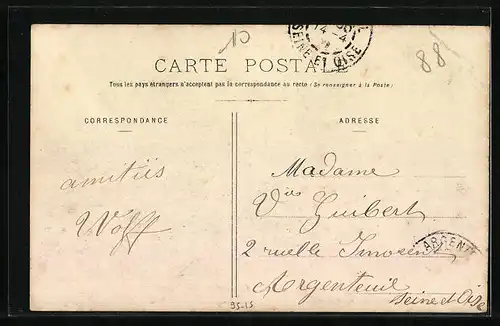 10
14 -4
SEINE ET OISE
88
CARTE POSTALE
Tous les pays étrangers n'acceptent pas la correspondance au recto (Se renseigner à la Poste)
CORRESPONDANCE
ADRESSE
amitiés
Wolff
Madame
Vve Guibert
2 ruelle Inosent
Argenteuil
Seine et Oise
ARGENT
95-15